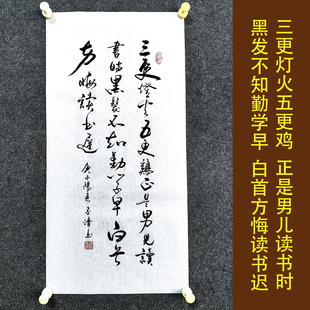 三更燈火五更鷄正是男児讀
書時黑髮不知勤學早白首
方悔读书遲
三更灯火五更鸡 正是男儿读书时
黑发不知勤学早 白首方悔读书迟